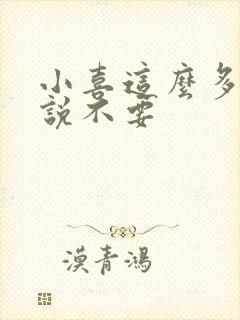 小喜這麼多
說不要
漢青鴻